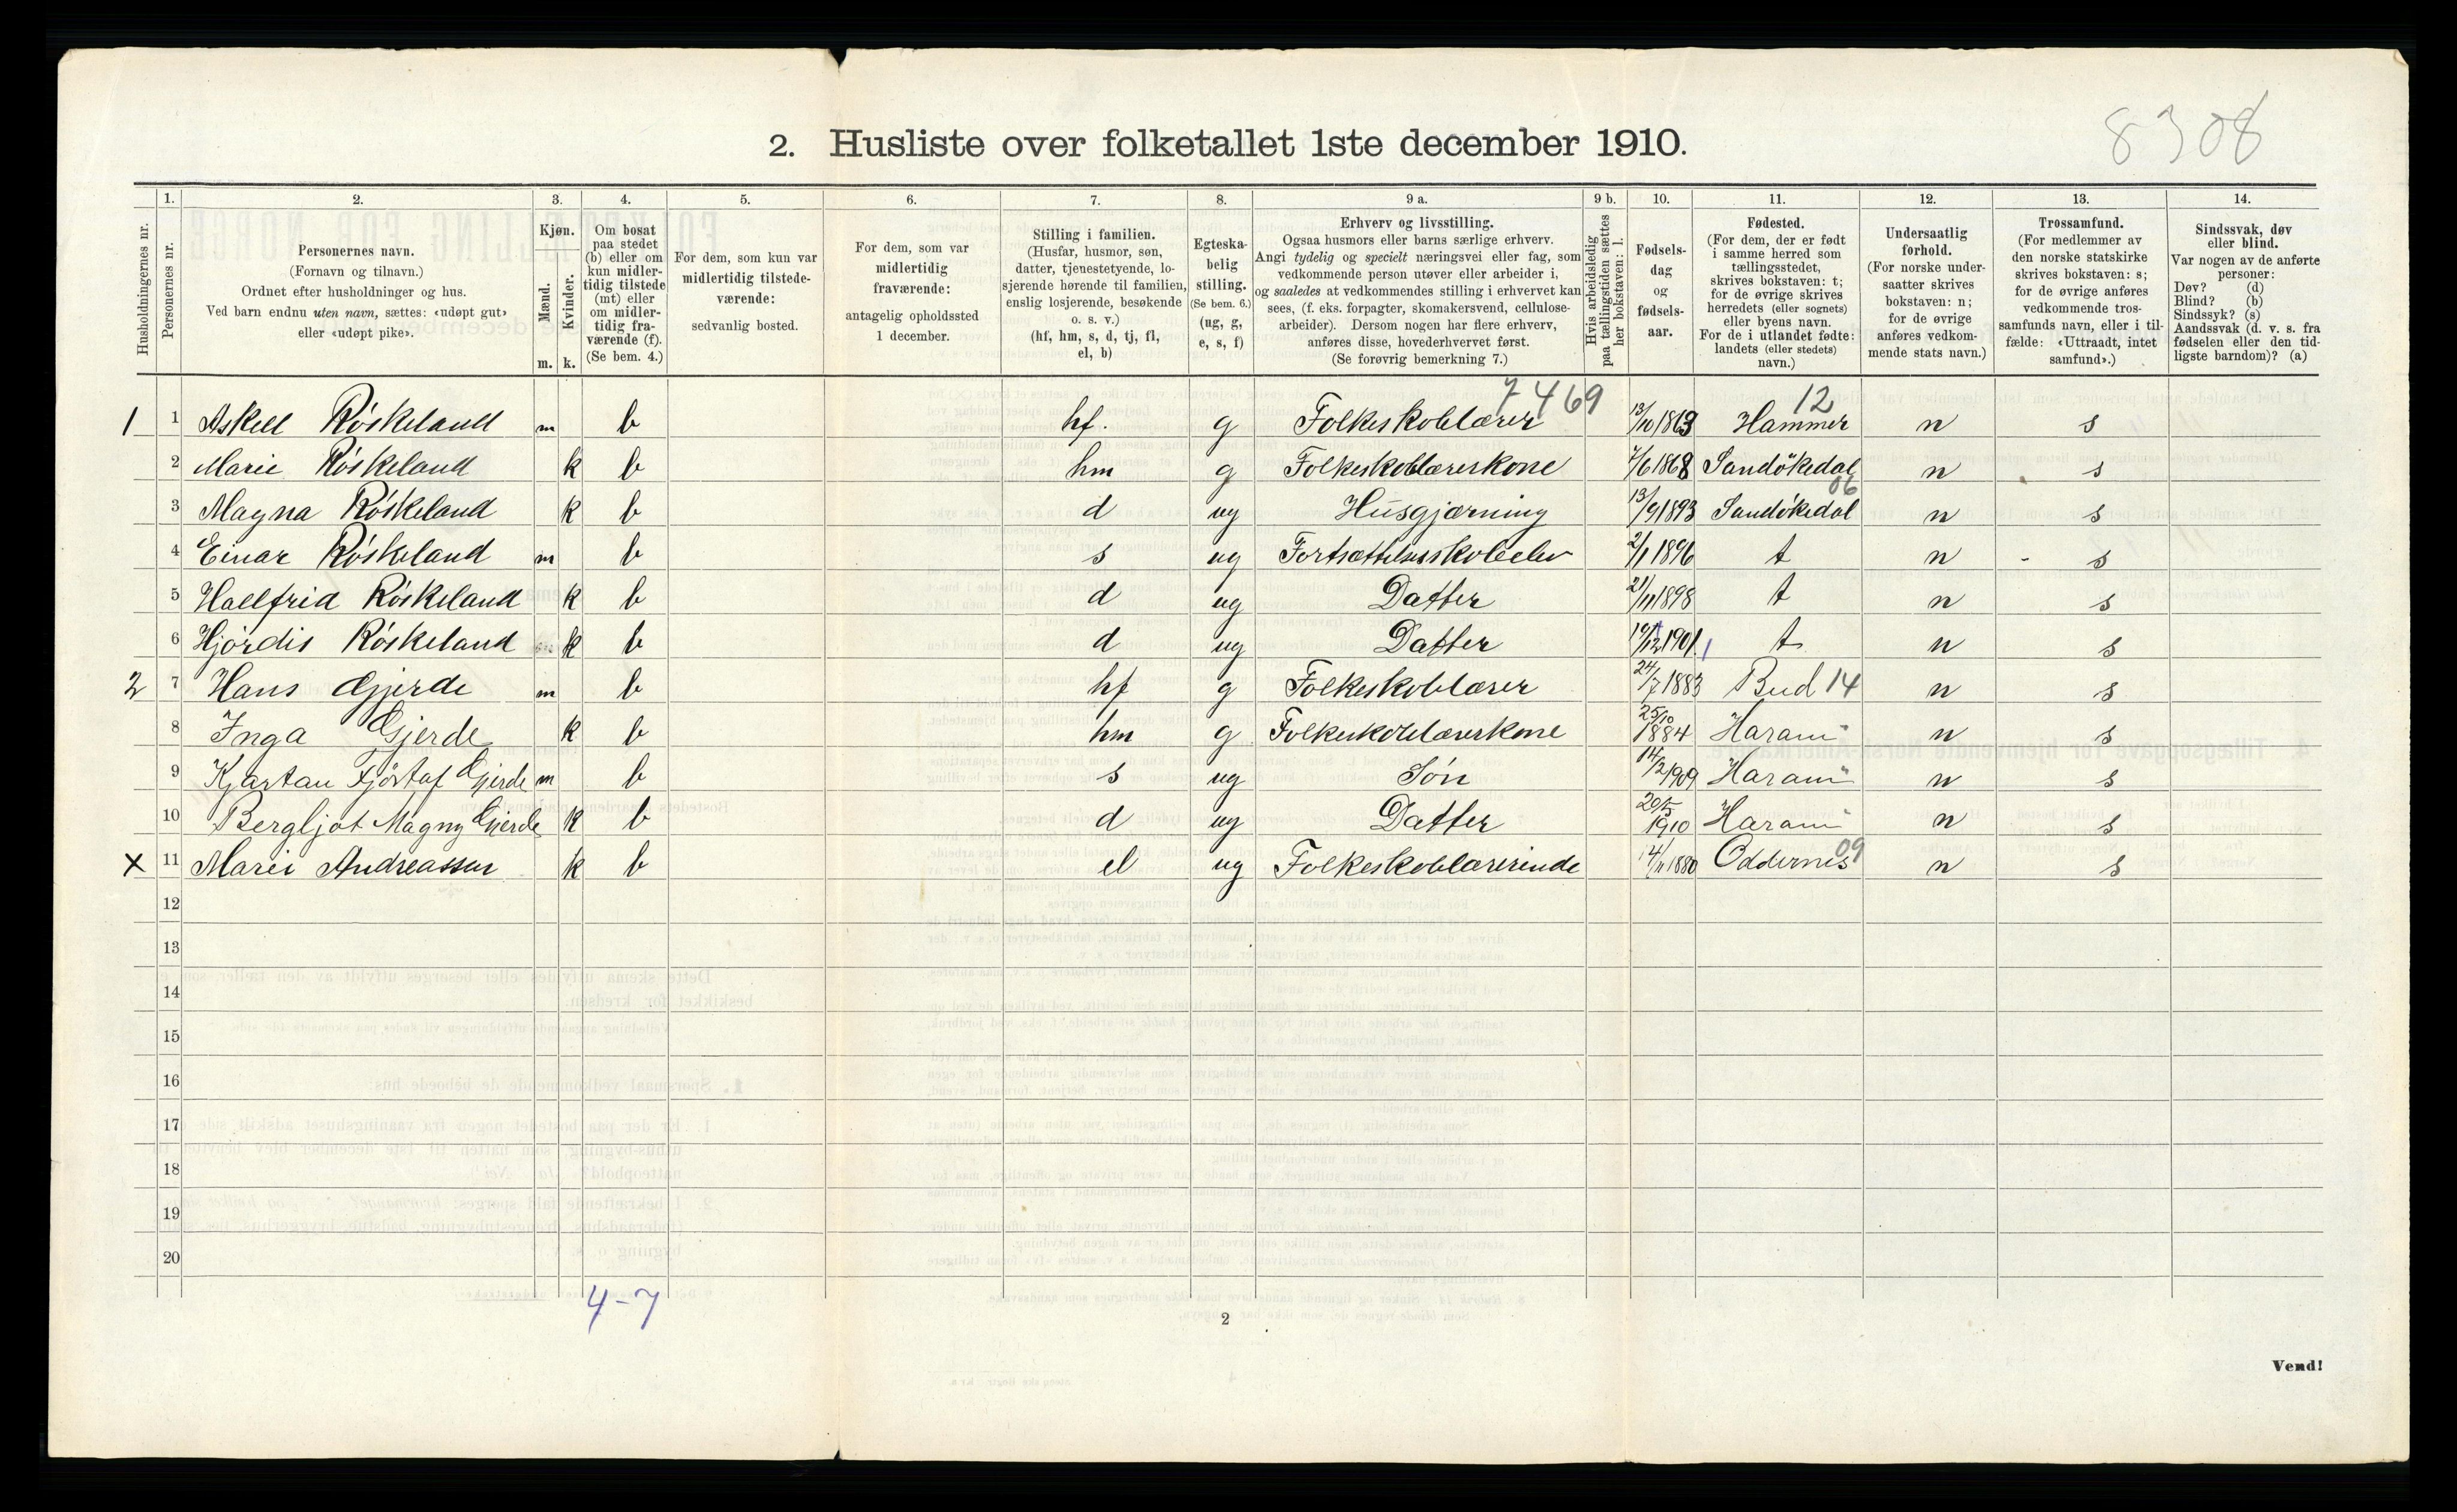 8308
2. Husliste over folketallet 1ste december 1910.
Husholdningernes nr.
1. Personernes nr.
2. Personernes navn. (Fornavn og tilnavn.) Ordnet efter husholdninger og hus. Ved barn endnu uten navn, sættes: «udøpt gut» eller «udøpt pike».
3. Kjøn. Mænd. m. Kvinder. k.
4. Om bosat paa stedet (b) eller om kun midlertidig tilstede (mt) eller om midlertidig fraværende (f). (Se bem. 4.)
5. For dem, som kun var midlertidig tilstedeværende: sedvanlig bosted.
6. For dem, som var midlertidig fraværende: antagelig opholdssted 1 december.
7. Stilling i familien. (Husfar, husmor, søn, datter, tjenestetyende, losjerende hørende til familien, enslig losjerende, besøkende o. s. v.) (hf, hm, s, d, tj, fl, el, b)
8. Egteskabelig stilling. (Se bem. 6.) (ug, g, e, s, f)
9 a. Erhverv og livsstilling. Ogsaa husmors eller barns særlige erhverv. Angi tydelig og specielt næringsvei eller fag, som vedkommende person utøver eller arbeider i, og saaledes at vedkommendes stilling i erhvervet kan sees, (f. eks. forpagter, skomakersvend, cellulosearbeider). Dersom nogen har flere erhverv, anføres disse, hovederhvervet først. (Se forøvrig bemerkning 7.)
9 b. Hvis arbeidsledig paa tællingstiden sættes her bokstaven: l.
10. Fødselsdag og fødselsaar.
11. Fødested. (For dem, der er født i samme herred som tællingsstedet, skrives bokstaven: t; for de øvrige skrives herredets (eller sognets) eller byens navn. For de i utlandet fødte: landets (eller stedets) navn.)
12. Undersaatlig forhold. (For norske undersaatter skrives bokstaven: n; for de øvrige anføres vedkommende stats navn.)
13. Trossamfund. (For medlemmer av den norske statskirke skrives bokstaven: s; for de øvrige anføres vedkommende trossamfunds navn, eller i tilfælde: «Uttraadt, intet samfund».)
14. Sindssvak, døv eller blind. Var nogen av de anførte personer: Døv? (d) Blind? (b) Sindssyk? (s) Aandssvak (d. v. s. fra fødselen eller den tidligste barndom)? (a)
7469 12
1 1 Askell Röskeland m b hf. g Folkeskolelærer 13/10 1863 Hammer n s
2 Marie Röskeland k b hm g Folkeskolelærerskone 7/6 1868 Sandökedal n s
06
3 Magna Röskeland k b d ug Husgjærning 13/9 1893 Sandökedal n s
4 Einar Röskeland m b s ug Fortsættelsesskoleelev 2/1 1896 t n - s
5 Hallfrid Röskeland k b d ug Datter 21/11 1898 t n s
6 Hjördis Röskeland k b d ug Datter 19/12 1901 t n s
2 7 Hans Gjerde m b hf g Folkeskolelærer 24/7 1883 Bud 14 n s
8 Inga Gjerde k b hm g Folkeskolelærerskone 25/10 1884 Haram n s
9 Kjartan Fjörtof Gjerde m b s ug Sön 14/2 1909 Haram n s
10 Bergljot Magny Gjerde k b d ug Datter 20/5 1910 Haram n s
X 11 Marie Andreassen k b el ug Folkeskolelærerinde 14/11 1880 Oddernes 09 n s
12
13
14
15
16
17
18
19
20
4-7
2
Vend!